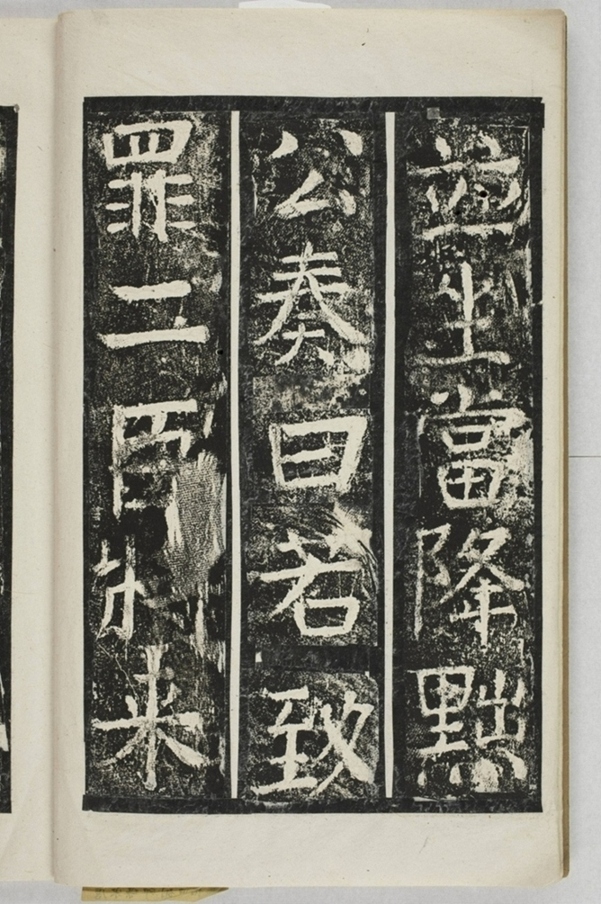 並坐當降黜
公奏曰若致
罪二臣来